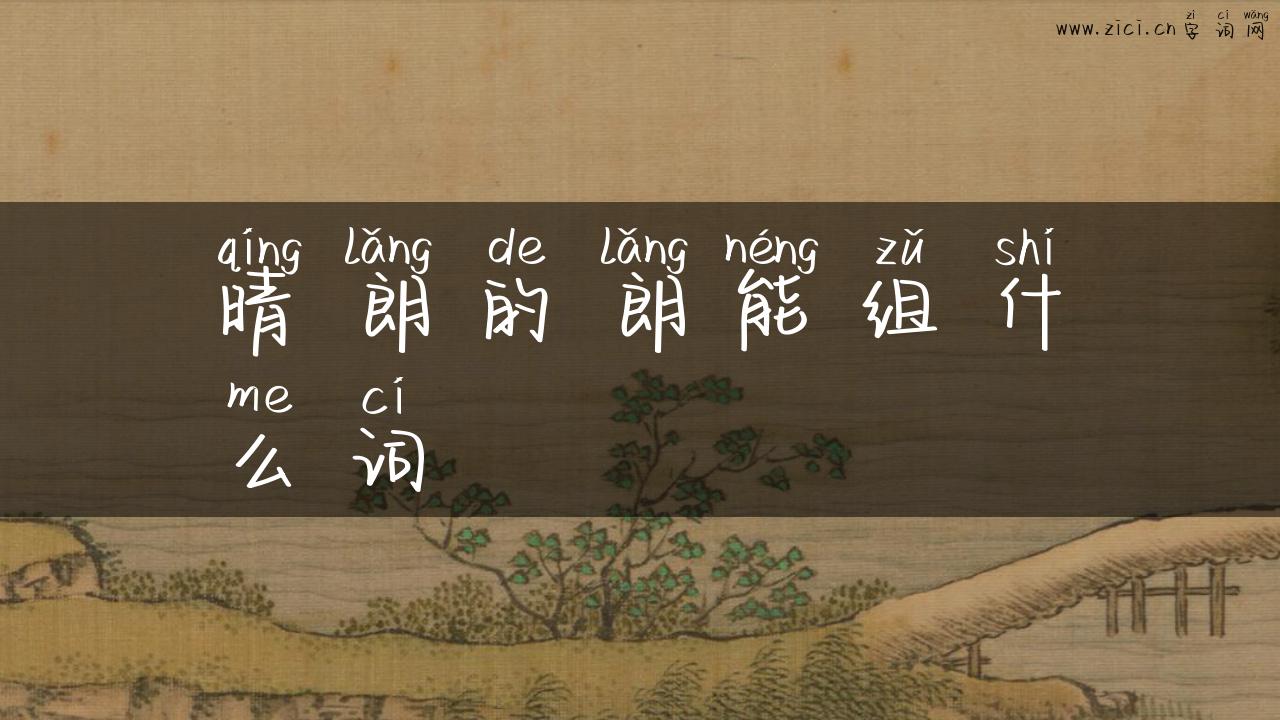 zì cí wǎng
www.zici.cn 字词网
qíng lǎng de lǎng néng zǔ shí
晴朗的朗能组什
me cí
么词